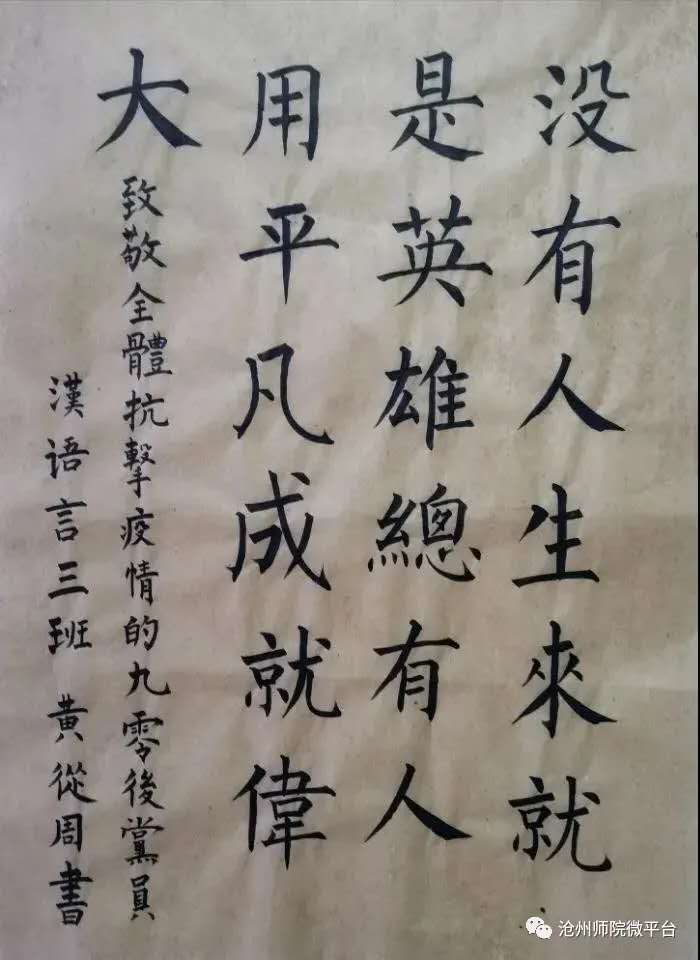 没有人生來就
是英雄總有人
用平凡成就偉
大
致敬全體抗擊疫情的九零後黨員
漢语言三班 黄從周書
沧州师院微平台